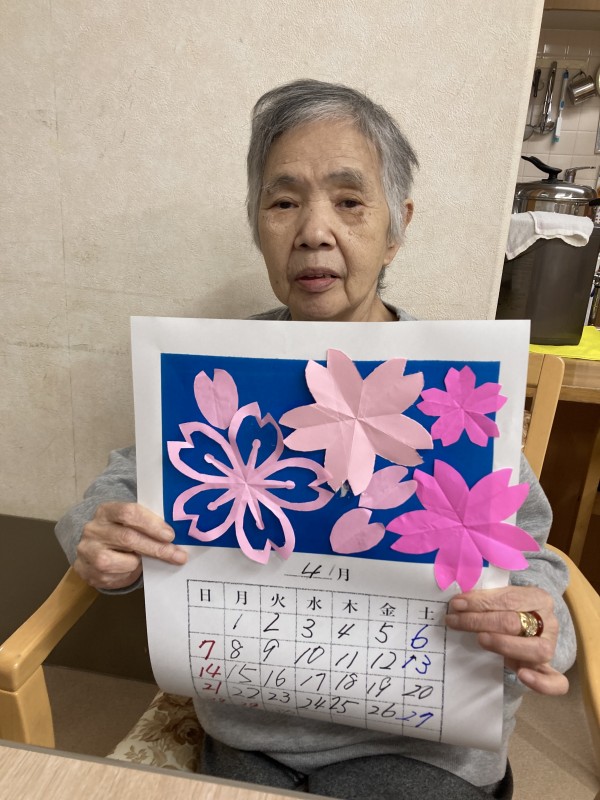 4月
日 月 火 水 木 金 土
1 2 3 4 5 6
7 8 9 10 11 12 13
14 15 16 17 18 19 20
21 22 23 24 25 26 27